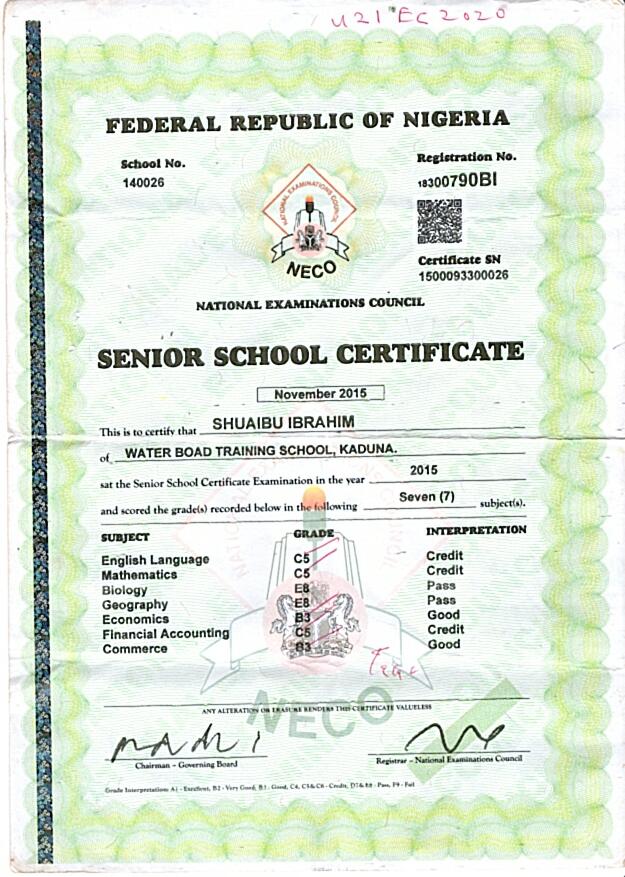 U21EC2020
FEDERAL REPUBLIC OF NIGERIA
School No.
140026
Registration No.
18300790BI
NATIONAL EXAMINATIONS COUNCIL
NECO
Certificate SN
1500093300026
NATIONAL EXAMINATIONS COUNCIL
SENIOR SCHOOL CERTIFICATE
November 2015
This is to certify that SHUAIBU IBRAHIM
of WATER BOAD TRAINING SCHOOL, KADUNA.
sat the Senior School Certificate Examination in the year 2015
and scored the grade(s) recorded below in the following Seven (7) subject(s).
SUBJECT GRADE INTERPRETATION
English Language C5 Credit
Mathematics C5 Credit
Biology E8 Pass
Geography E8 Pass
Economics B3 Good
Financial Accounting C5 Credit
Commerce B3 Good
NECO
ANY ALTERATION OR ERASURE RENDERS THIS CERTIFICATE VALUELESS
Chairman - Governing Board
Registrar - National Examinations Council
Grade Interpretation: A1 - Excellent, B2 - Very Good, B3 - Good, C4, C5 & C6 - Credit, D7 & E8 - Pass, F9 - Fail